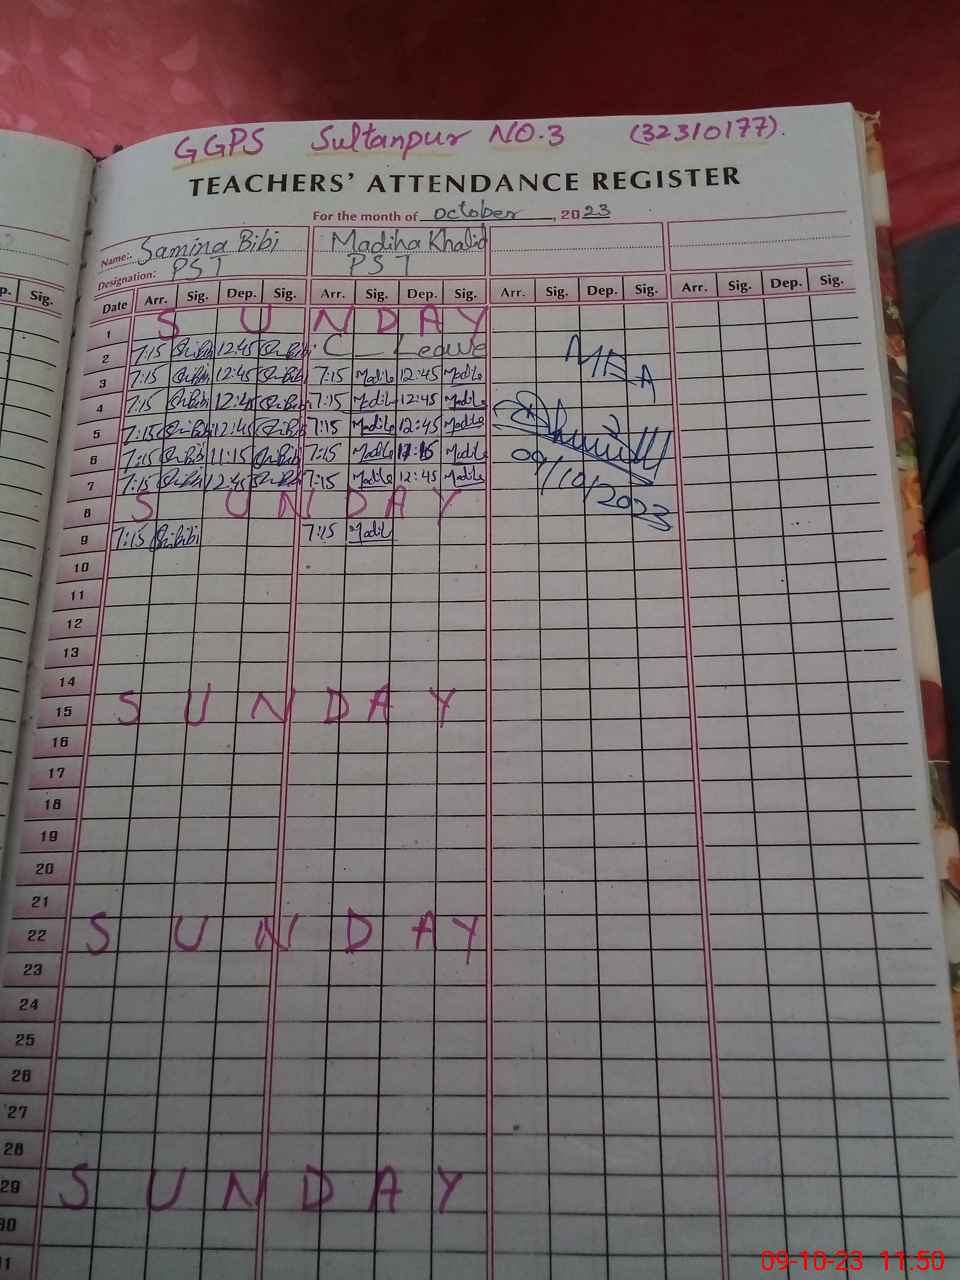 GGPS Sultanpur NO.3 (32310177).
TEACHERS' ATTENDANCE REGISTER
For the month of October, 2023
Name:. Samina Bibi Madiha Khalid
Designation: PST PST
p. Sig. Date Arr. Sig. Dep. Sig. Arr. Sig. Dep. Sig. Arr. Sig. Dep. Sig. Arr. Sig. Dep. Sig.
1 S U N D A Y
2 7:15 12:45 C_Leave MEA
3 7:15 12:45 7:15 12:45
4 7:15 12:45 7:15 12:45
5 7:15 12:45 7:15 12:45
6 7:15 11:15 7:15 11:15 09/10/2023
7 7:15 12:45 7:15 12:45
8 S U N D A Y
9 7:15 7:15
10
11
12
13
14
15 S U N D A Y
16
17
18
19
20
21
22 S U N D A Y
23
24
25
26
27
28
29 S U N D A Y
30
09-10-23 11.50